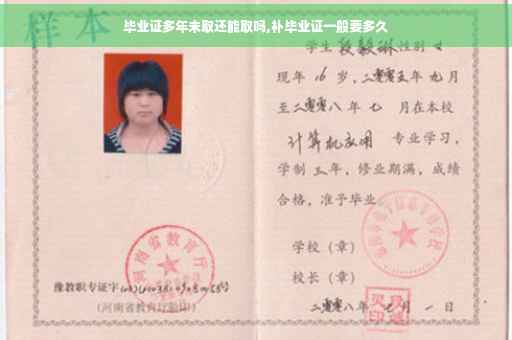 毕业证多年未取还能取吗,补毕业证一般要多久
样本
学生 段毅琳 性别 女
现年 16 岁,二零零五年 九 月
至二零零八年 七 月在本校
计算机应用 专业学习,
学制 三 年,修业期满,成绩
合格,准予毕业
学校(章)
校长(章)
二零零八年 月 一 日
河南省教育厅
豫教职专证字
(河南省教育厅验印)